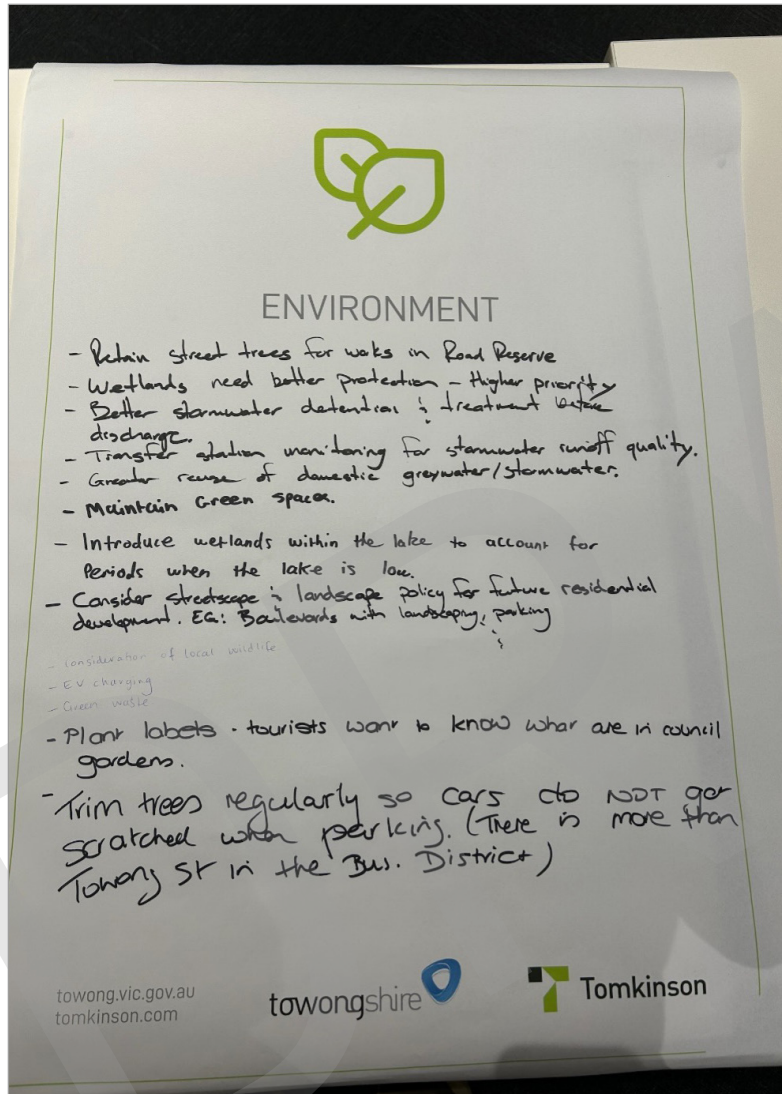 ENVIRONMENT
- Retain street trees for waks in Road Reserve
- Wetlands need better protection - Higher priority
- Better stormwater detention & treatment before
discharge.
- Transfer station monitoring for stormwater runoff quality.
- Greater reuse of domestic greywater/stormwater.
- Maintain Green spaces.
- Introduce wetlands within the lake to account for
Periods when the lake is low.
- Consider streetscape & landscape policy for future residential
development. EG: Boulevards with landscaping, parking
&
- Consideration of local wildlife
- EV charging
- Green waste
- Plant labels - tourists want to know what are in council
gardens.
- Trim trees regularly so cars do NOT get
scratched when parking. (There is more than
Towong St in the Bus. District)
towong.vic.gov.au
tomkinson.com
towongshire
Tomkinson